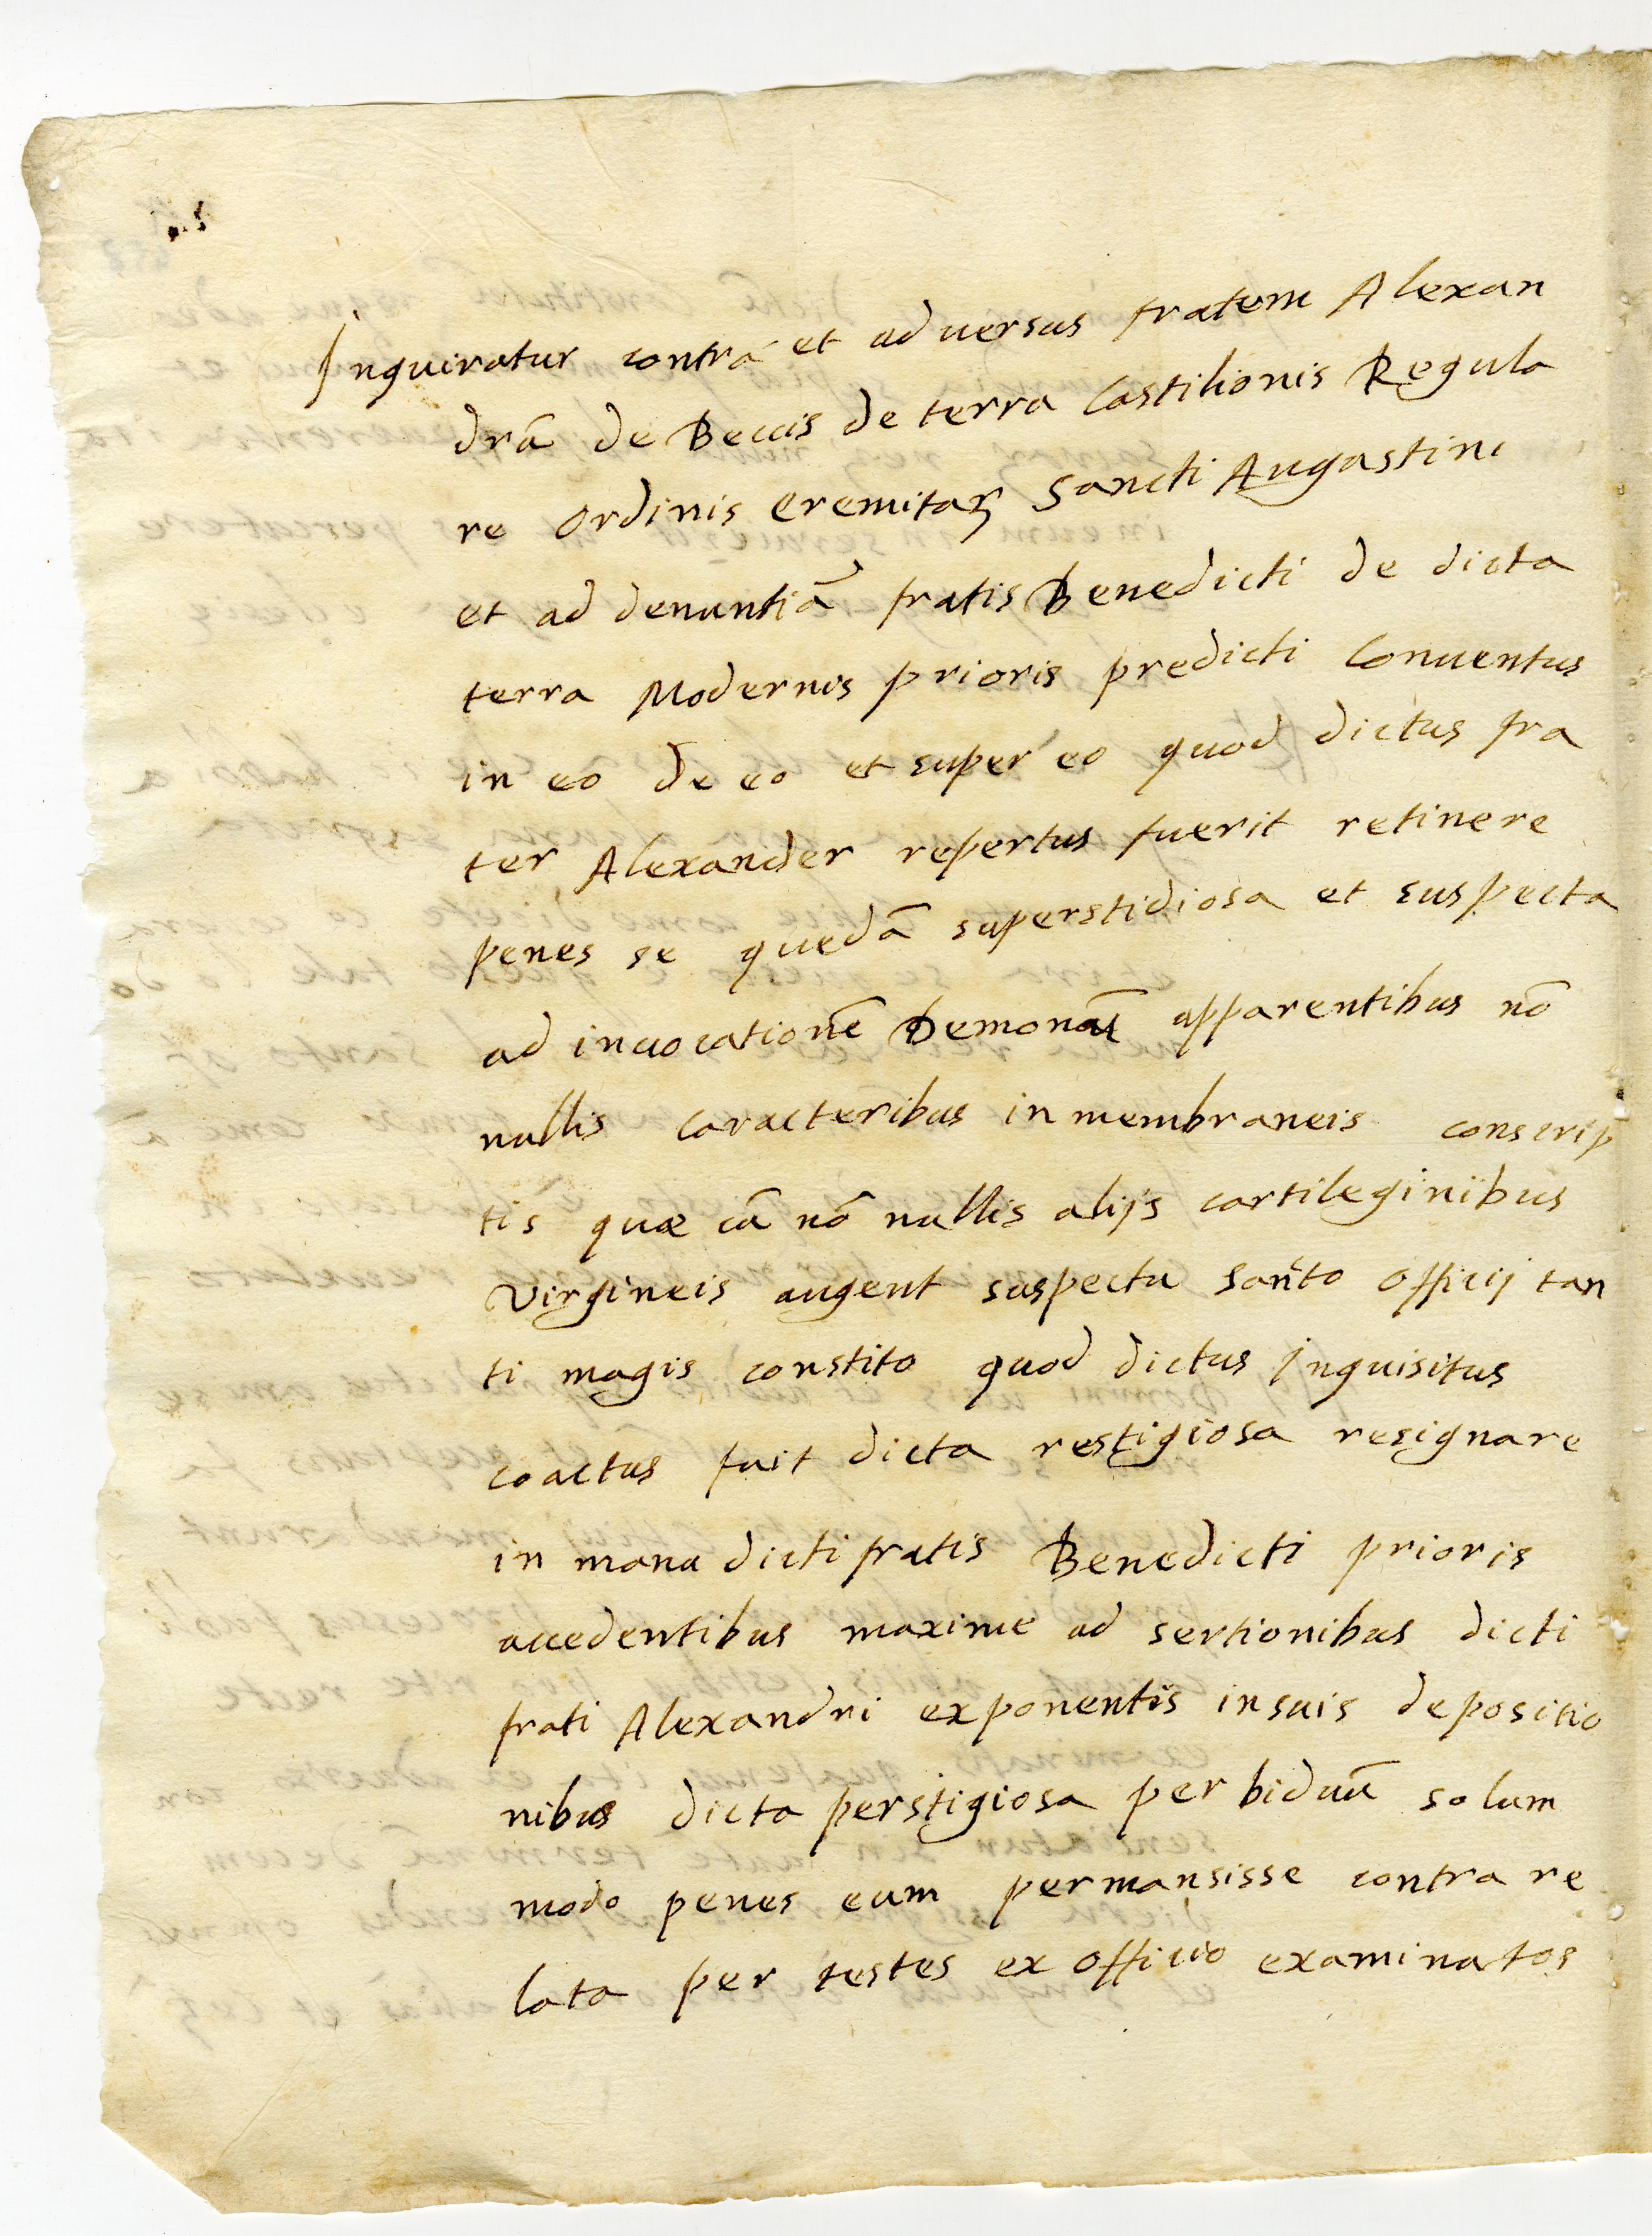 Inquiratur contra et adversus fratem Alexan
drã de Beccis de terra Castilionis Regula
re Ordinis eremitaꝝ Sancti Augustini
et ad denuntiã fratis Benedicti de dicta
terra Modernus prioris predicti Conventus
in eo de eo et super eo quod dictus fra
ter Alexander repertus fuerit retinere
penes se quedã superstidiosa et suspecta
ad invocationẽ Demonũ apparentibus nõ
nullis caracteribus in membraneis conscrip
tis quæ cũ nõ nullis alijs cartileginibus
virgineis augent suspecta Sañto Officij tan
ti magis constito quod dictus Inquisitus
coactus fuit dicta restigiosa resignare
in manu dicti fratis Benedicti prioris
accedentibus maxime ad sertionibus dicti
frati Alexandri exponentis in suis depositio
nibus dicta perstigiosa per biduũ solum
modo penes eum permansisse contra re
lata per testes ex officio examinatos